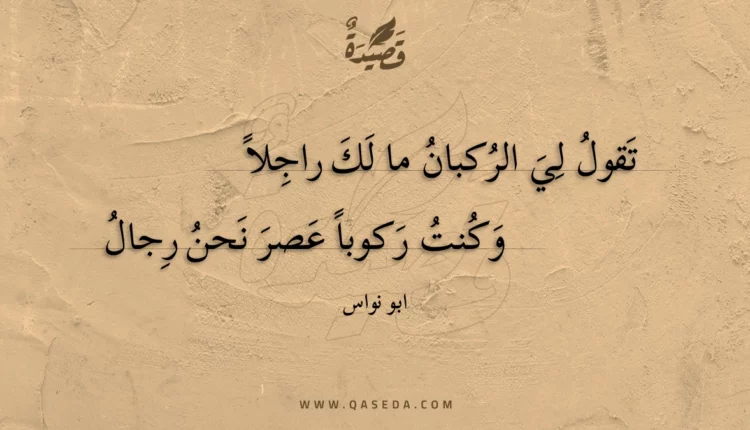 قَصِيدَةٌ
تَقولُ لِيَ الرُكبانُ ما لَكَ راجِلاً
وَكُنتُ رَكوباً عَصرَ نَحنُ رِجالُ
ابو نواس
WWW.QASEDA.COM